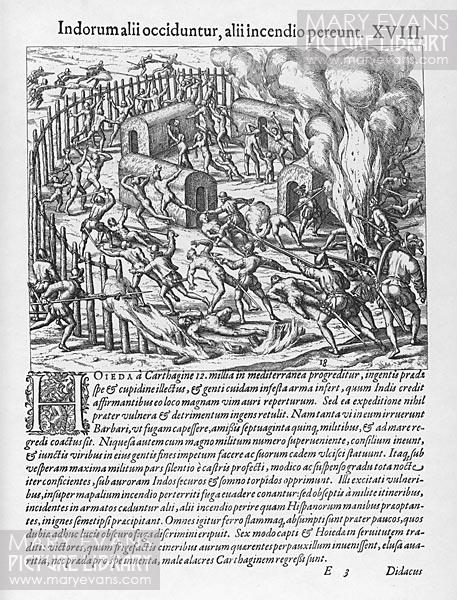 MARY EVANS
PICTURE LIBRARY
Indorum alii occiduntur, alii incendio pereunt. XVIII.
18
HOIEDA à Carthagine 12. millia in mediterranea progreditur, ingentis præda
spe & cupidine illectus, & genti cuidam infesta arma infert, quum Indis credit
affirmantibus eo loco magnam vim auri reperturum. Sed ea expeditione nihil
præter vulnera & detrimentum ingens retulit. Nam tanta vi in eum irruerunt
Barbari, vt fugam capessere, amissis septuaginta quinq, militibus, & ad mare re-
gredi coactus sit. Niquesa autem cum magno militum numero superueniente, consilium ineunt,
& iunctis viribus in eius gentis fines impetum facere ac suorum cædem vlcisci statuunt. Itaq, sub
vesperam maxima militum pars silentio è castris profecti, modico ac suspenso gradu tota nocte
iter conficientes, sub auroram Indos securos & somno torpidos opprimunt. Illi excitati vulneri-
bus, insuper mapalium incendio perterriti fuga euadere conantur: sed obseptis à milite itineribus,
incidentes in armatos cæduntur alii, alii incendio perire quàm Hispanorum manibus præoptan-
tes, in ignes semetipsi præcipitant. Omnes igitur ferro flammaq, absumpti sunt præter paucos, quos
dubia adhuc lucis obscuro fuga discrimini eripuit. Sex modo capti & Hoieda in seruitutem tra-
diti: victores, quum frigefactis cineribus aurum quærentes perpauxillum inuenissent, elusa aua-
ritia, nec præda prospè inuenta, malè alacres Carthaginem regressi sunt.
E 3 Didacus
MARY EVANS
PICTURE LIBRARY
www.maryevans.com